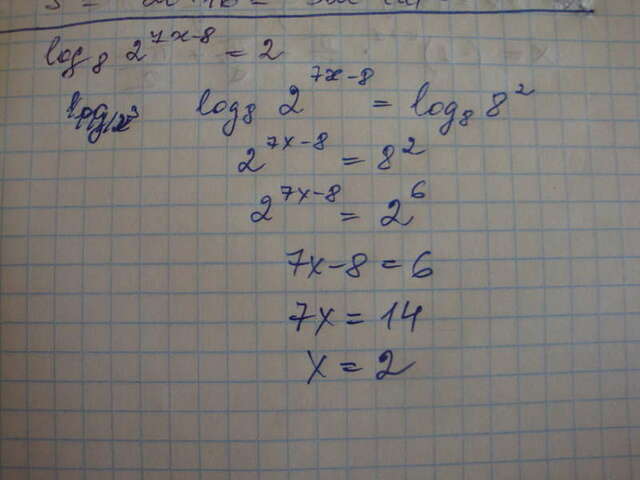 log₈ 2^(7x-8) = 2
log₈ 2^(7x-8) = log₈ 8²
2^(7x-8) = 8²
2^(7x-8) = 2⁶
7x-8 = 6
7x = 14
x = 2